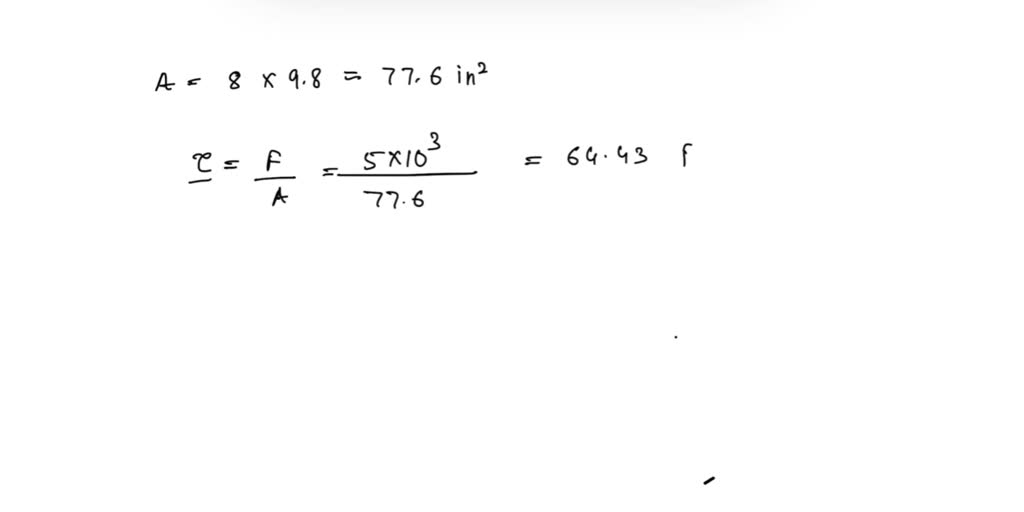 A = 8 x 9.8 = 77.6 in²
τ = F/A = 5×10³/77.6 = 64.43 p